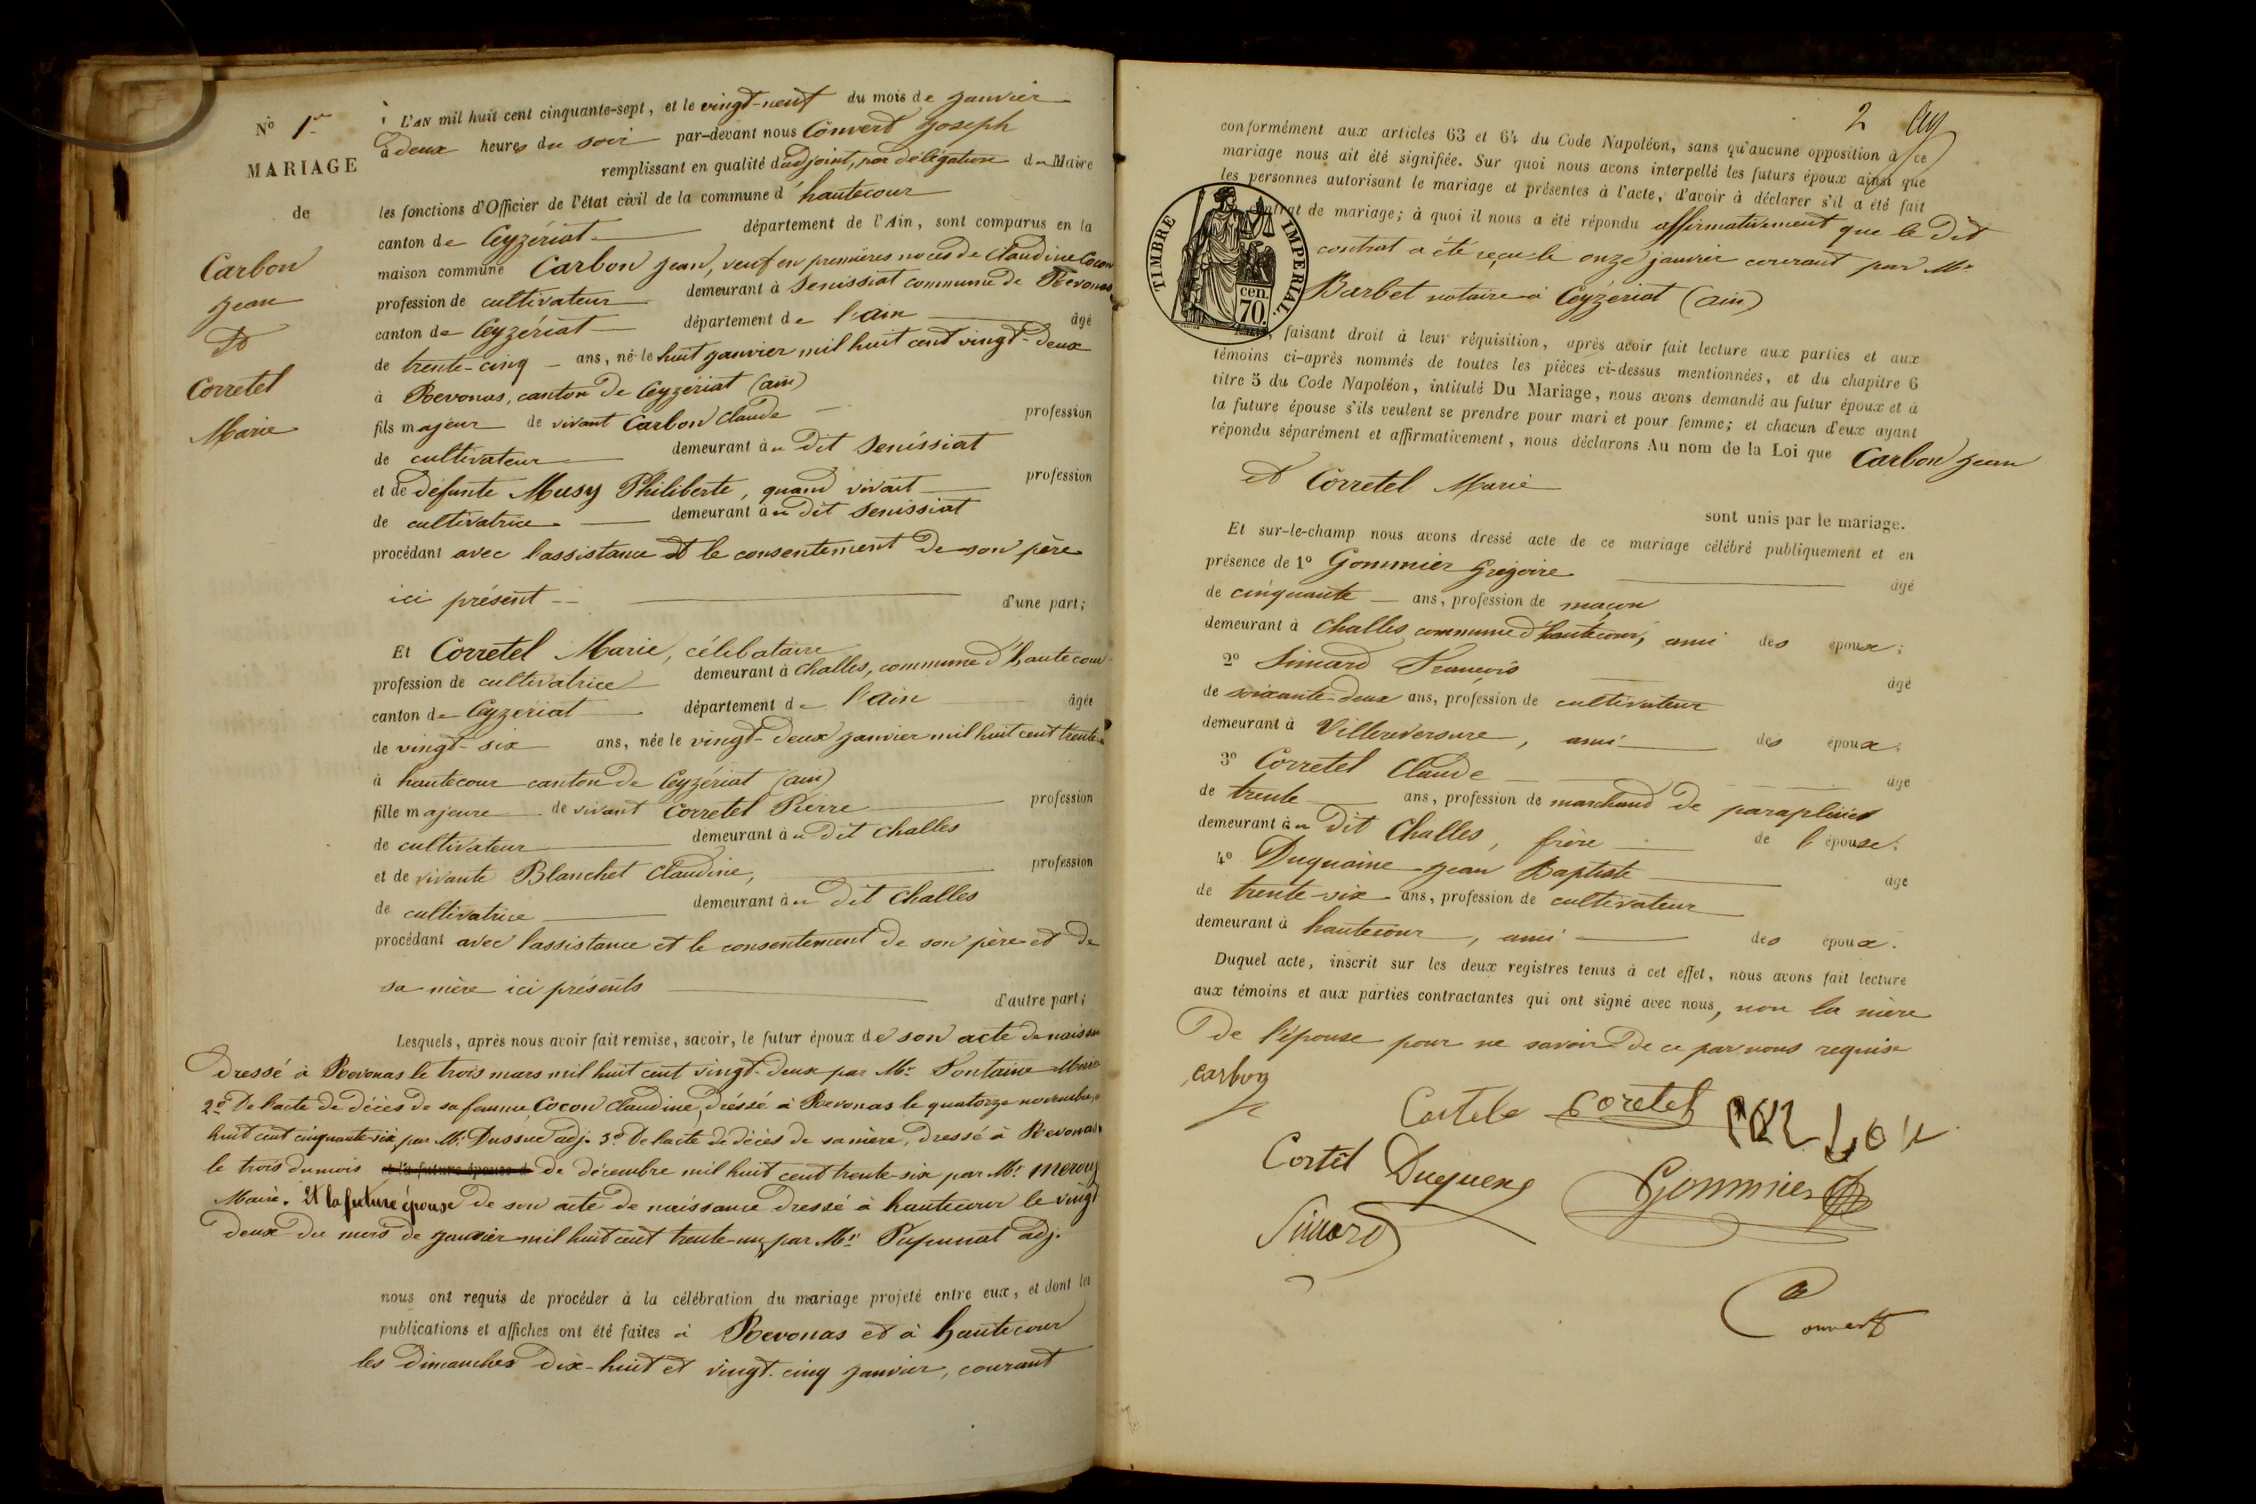 N° 1er
MARIAGE
de
Carbon
Jean
et
Corretel
Marie
L'AN mil huit cent cinquante-sept, et le vingt-neuf du mois de janvier
à deux heures du soir par-devant nous Convert Joseph
remplissant en qualité d'adjoint, par délégation du Maire
les fonctions d'Officier de l'état civil de la commune d'hautecour
canton de Ceyzériat département de l'Ain, sont comparus en la
maison commune Carbon Jean, veuf en premières noces de Claudine Cocon
profession de cultivateur demeurant à Senissiat commune de Revonas
canton de Ceyzériat département de l'ain âgé
de trente-cinq ans, né le huit janvier mil huit cent vingt-deux
à Revonas, canton de Ceyzériat (ain)
fils majeur de vivant Carbon Claude profession
de cultivateur demeurant au dit Senissiat
et de défunte Musy Philiberte, quand vivait profession
de cultivatrice demeurant au dit Senissiat
procédant avec l'assistance et le consentement de son père
ici présent d'une part;
Et Corretel Marie, célibataire
profession de cultivatrice demeurant à Challes, commune d'hautecour
canton de Ceyzériat département de l'Ain âgée
de vingt-six ans, née le vingt-deux janvier mil huit cent trente-
à hautecour canton de Ceyzériat (ain)
fille majeure de vivant Corretel Pierre profession
de cultivateur demeurant au dit Challes
et de vivante Blanchet Claudine, profession
de cultivatrice demeurant au dit Challes
procédant avec l'assistance et le consentement de son père et de
sa mère ici présents d'autre part;
Lesquels, après nous avoir fait remise, savoir, le futur époux de son acte de naissan
dressé à Revonas le trois mars mil huit cent vingt-deux par Mr Fontaine Maire
2° De l'acte de décès de sa femme, Cocon Claudine, dréssé à Revonas le quatorze novembre
huit cent cinquante-six par Mr. Dussuc adj. 3° De l'acte de décès de sa mère, dressé à Revonas
le trois du mois de décembre mil huit cent trente-six par Mr
Maire. Et la future épouse de son acte de naissance dressé à hautecour le vingt
deux du mois de janvier mil huit cent trente-un, par Mr Pupunat adj.
nous ont requis de procéder à la célébration du mariage projeté entre eux, et dont les
publications et affiches ont été faites à Revonas et à hautecour
les Dimanches Dix-huit et vingt-cinq janvier, courant
2
conformément aux articles 63 et 64 du Code Napoléon, sans qu'aucune opposition à ce
mariage nous ait été signifiée. Sur quoi nous avons interpellé les futurs époux ainsi que
les personnes autorisant le mariage et présentes à l'acte, d'avoir à déclarer s'il a été fait
contrat de mariage; à quoi il nous a été répondu affirmativement que le dit
contrat a été reçu le onze janvier courant par Me
Barbet notaire à Ceyzériat (ain)
TIMBRE IMPERIAL.
cen.
70.
faisant droit à leur réquisition, après avoir fait lecture aux parties et aux
témoins ci-après nommés de toutes les pièces ci-dessus mentionnées, et du chapitre 6
titre 5 du Code Napoléon, intitulé Du Mariage, nous avons demandé au futur époux et à
la future épouse s'ils veulent se prendre pour mari et pour femme; et chacun d'eux ayant
répondu séparément et affirmativement, nous déclarons Au nom de la Loi que Carbon Jean
et Corretel Marie
sont unis par le mariage.
Et sur-le-champ nous avons dressé acte de ce mariage célébré publiquement et en
présence de 1° Gommier Grégoire âgé
de cinquante ans, profession de maçon
demeurant à Challes, commune d'hautecour, ami des époux;
2° Simard François âgé
de soixante-deux ans, profession de cultivateur
demeurant à Villereversure, ami des époux;
3° Corretel Claude âgé
de trente ans, profession de marchand de parapluies
demeurant au dit Challes, frère de l'épouse;
4° Duquaine Jean Baptiste âgé
de trente-six ans, profession de cultivateur
demeurant à hautecour, ami des époux.
Duquel acte, inscrit sur les deux registres tenus à cet effet, nous avons fait lecture
aux témoins et aux parties contractantes qui ont signé avec nous, non la mère
de l'épouse pour ne savoir de ce par nous requise
carbon
coretel
Duquene
Gommier
Convert